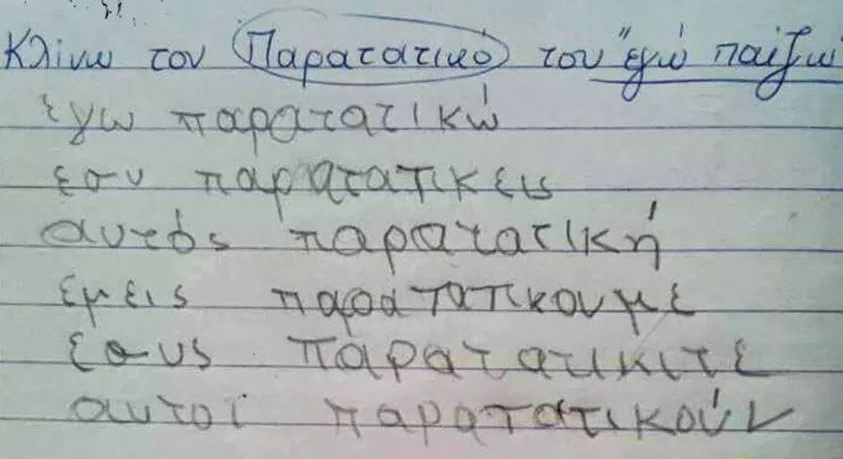 Κλίνω τον Παρατατικό του "εγώ παίζω
εγω παρατατικώ
εσυ παρατατικεις
αυτός παρατατική
εμεις παρατατικουμε
εσυς παρατατικιτε
αυτοι παρατατικούν